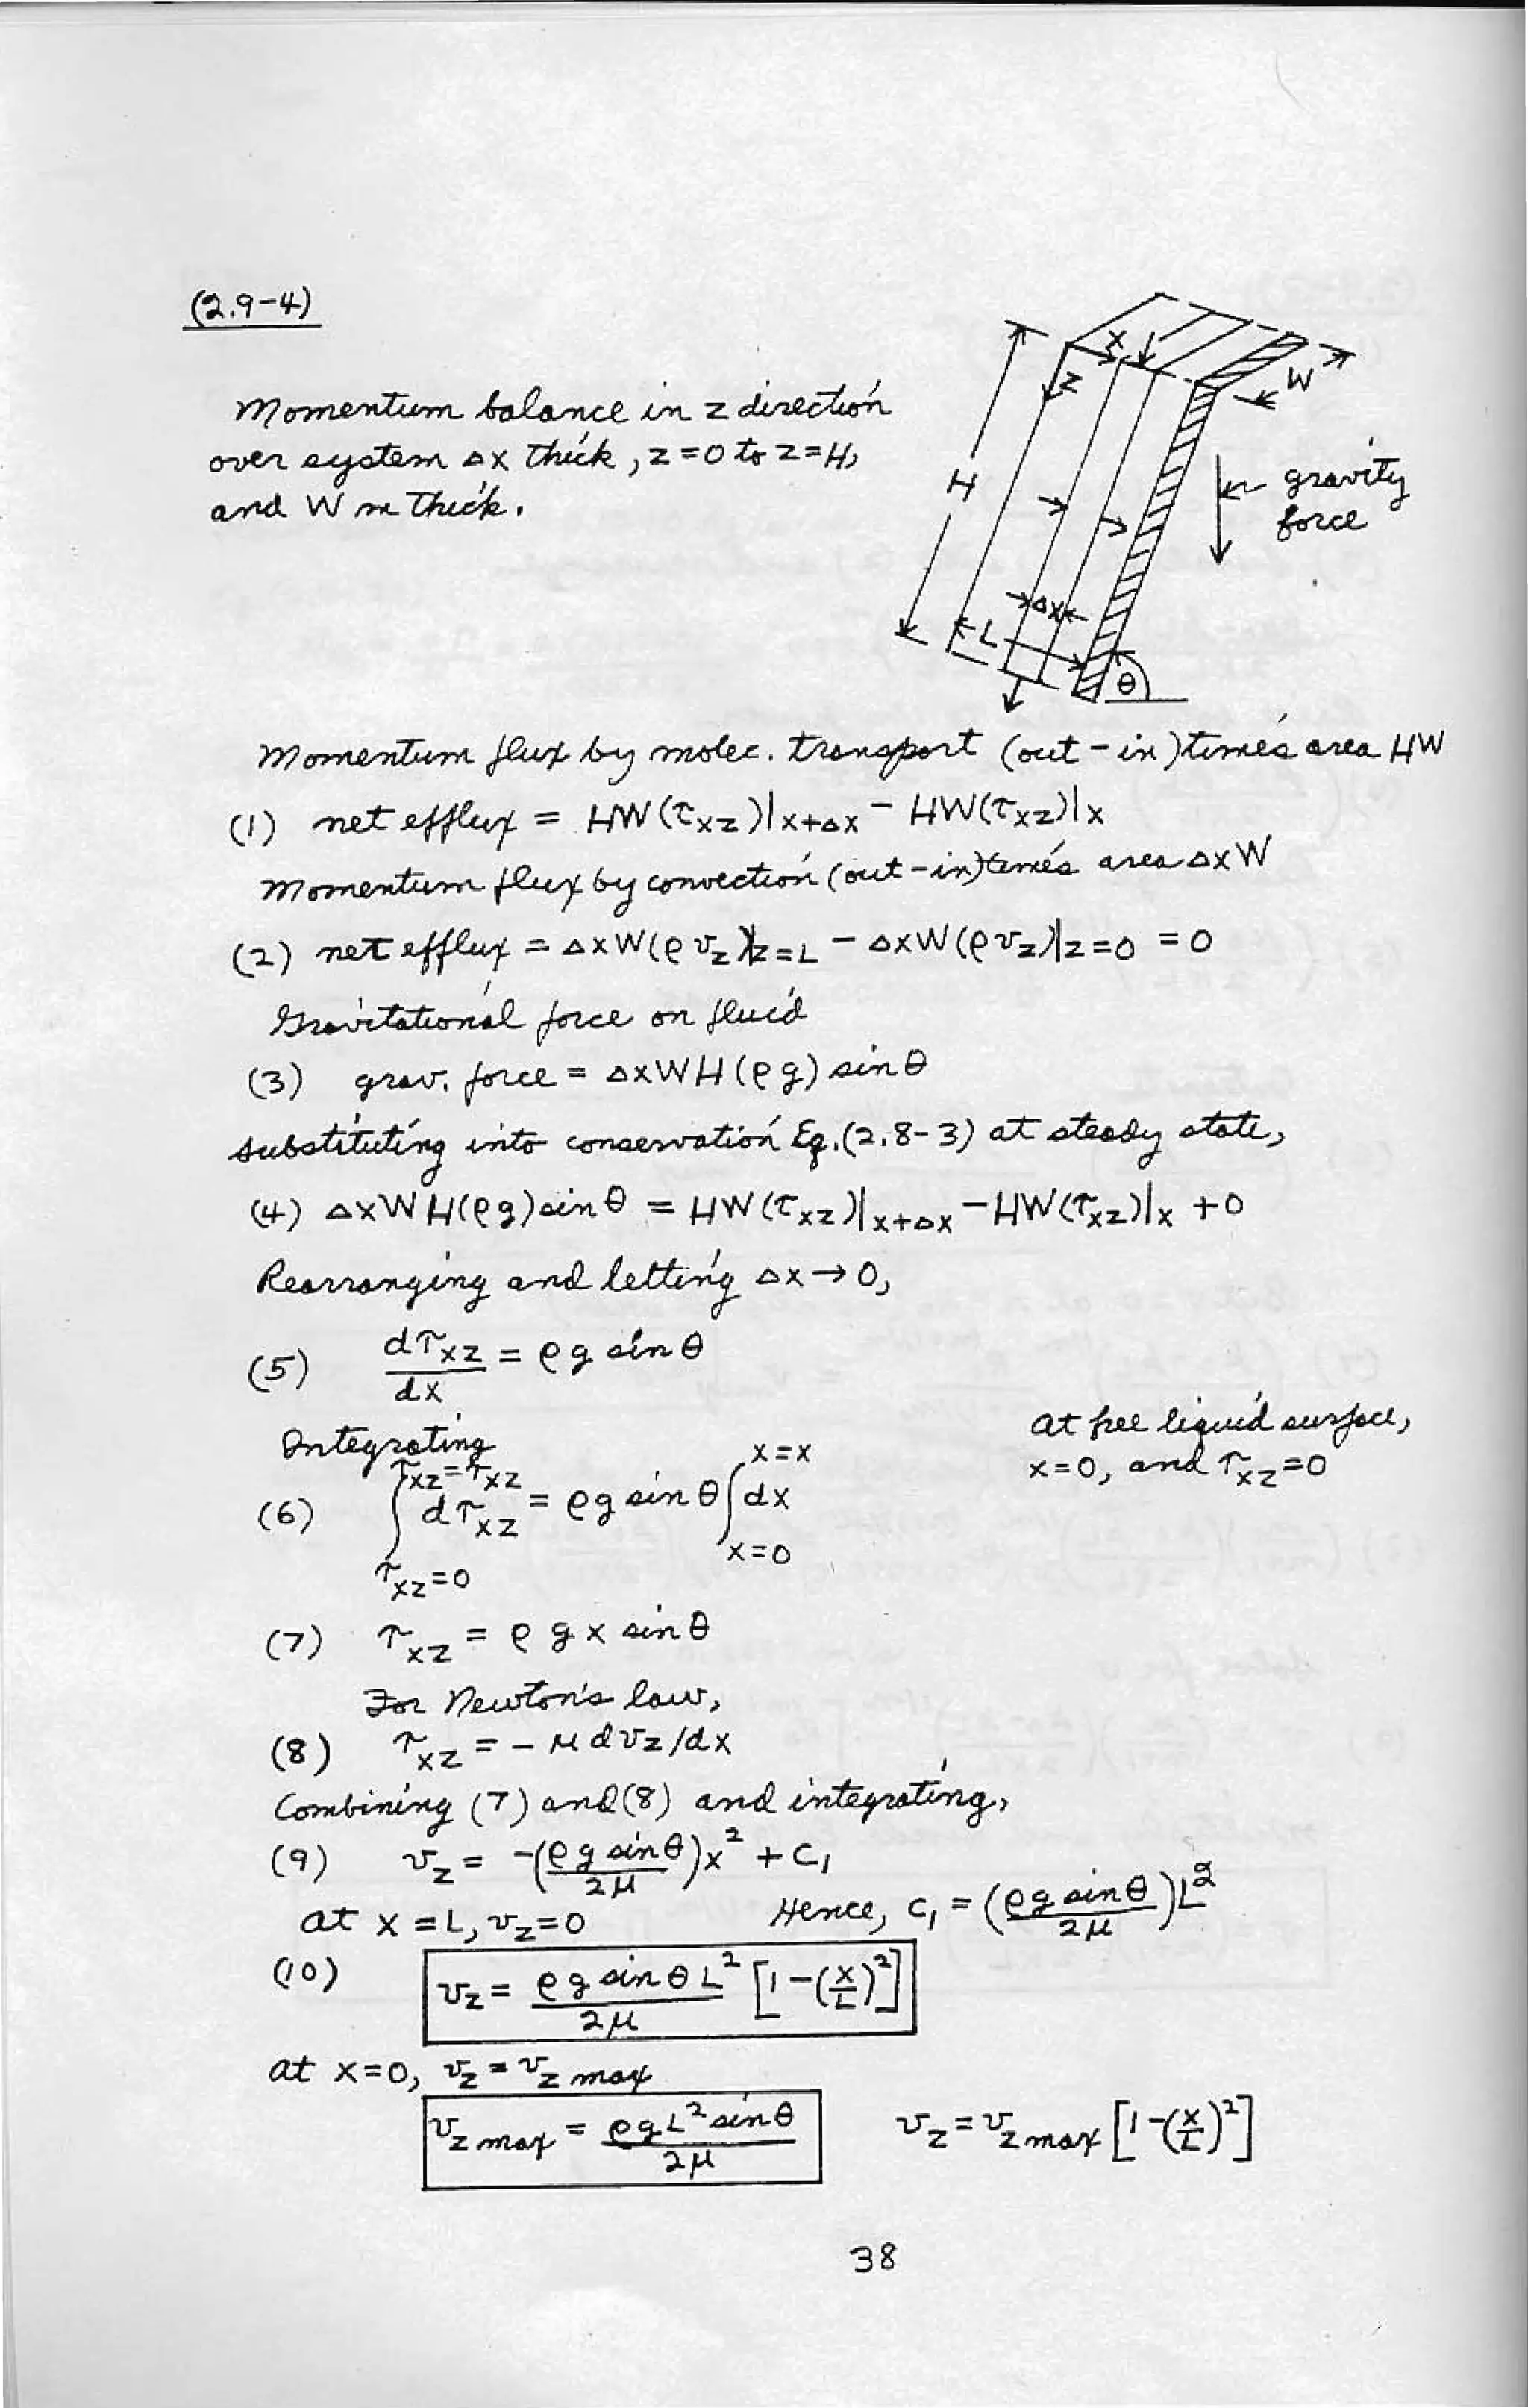 (2.9-4)
Momentum balance in z direction
over system Δx thick, z=0 to z=H,
and W m thick.
x
z
W
H
gravity
force
Δx
L
θ
Momentum flux by molec. transport (out - in) times area HW
(1) net efflux = HW(τxz)|x+Δx - HW(τxz)|x
Momentum flux by convection (out - in) times area ΔxW
(2) net efflux = ΔxW(ρvz)|z=L - ΔxW(ρvz)|z=0 = 0
Gravitational force on fluid
(3) grav. force = ΔxWH(ρg) sin θ
Substituting into conservation Eq.(2.8-3) at steady state,
(4) ΔxWH(ρg) sin θ = HW(τxz)|x+Δx - HW(τxz)|x + 0
Rearranging and letting Δx → 0,
(5) dτxz/dx = ρg sin θ
Integrating
at free liquid surface,
x=0, and τxz=0
(6) ∫_{τxz=0}^{τxz=τxz} dτxz = ρg sin θ ∫_{x=0}^{x=x} dx
(7) τxz = ρ g x sin θ
For Newton's law,
(8) τxz = - μ dvz/dx
Combining (7) and (8) and integrating,
(9) vz = -(ρg sin θ/2μ)x² + C1
at x = L, vz = 0 Hence, C1 = (ρg sin θ/2μ)L²
(10) vz = ρg sin θ L²/2μ [1 - (x/L)²]
at x=0, vz = vz max
vz max = ρgL² sin θ/2μ vz = vz max [1 - (x/L)²]
38